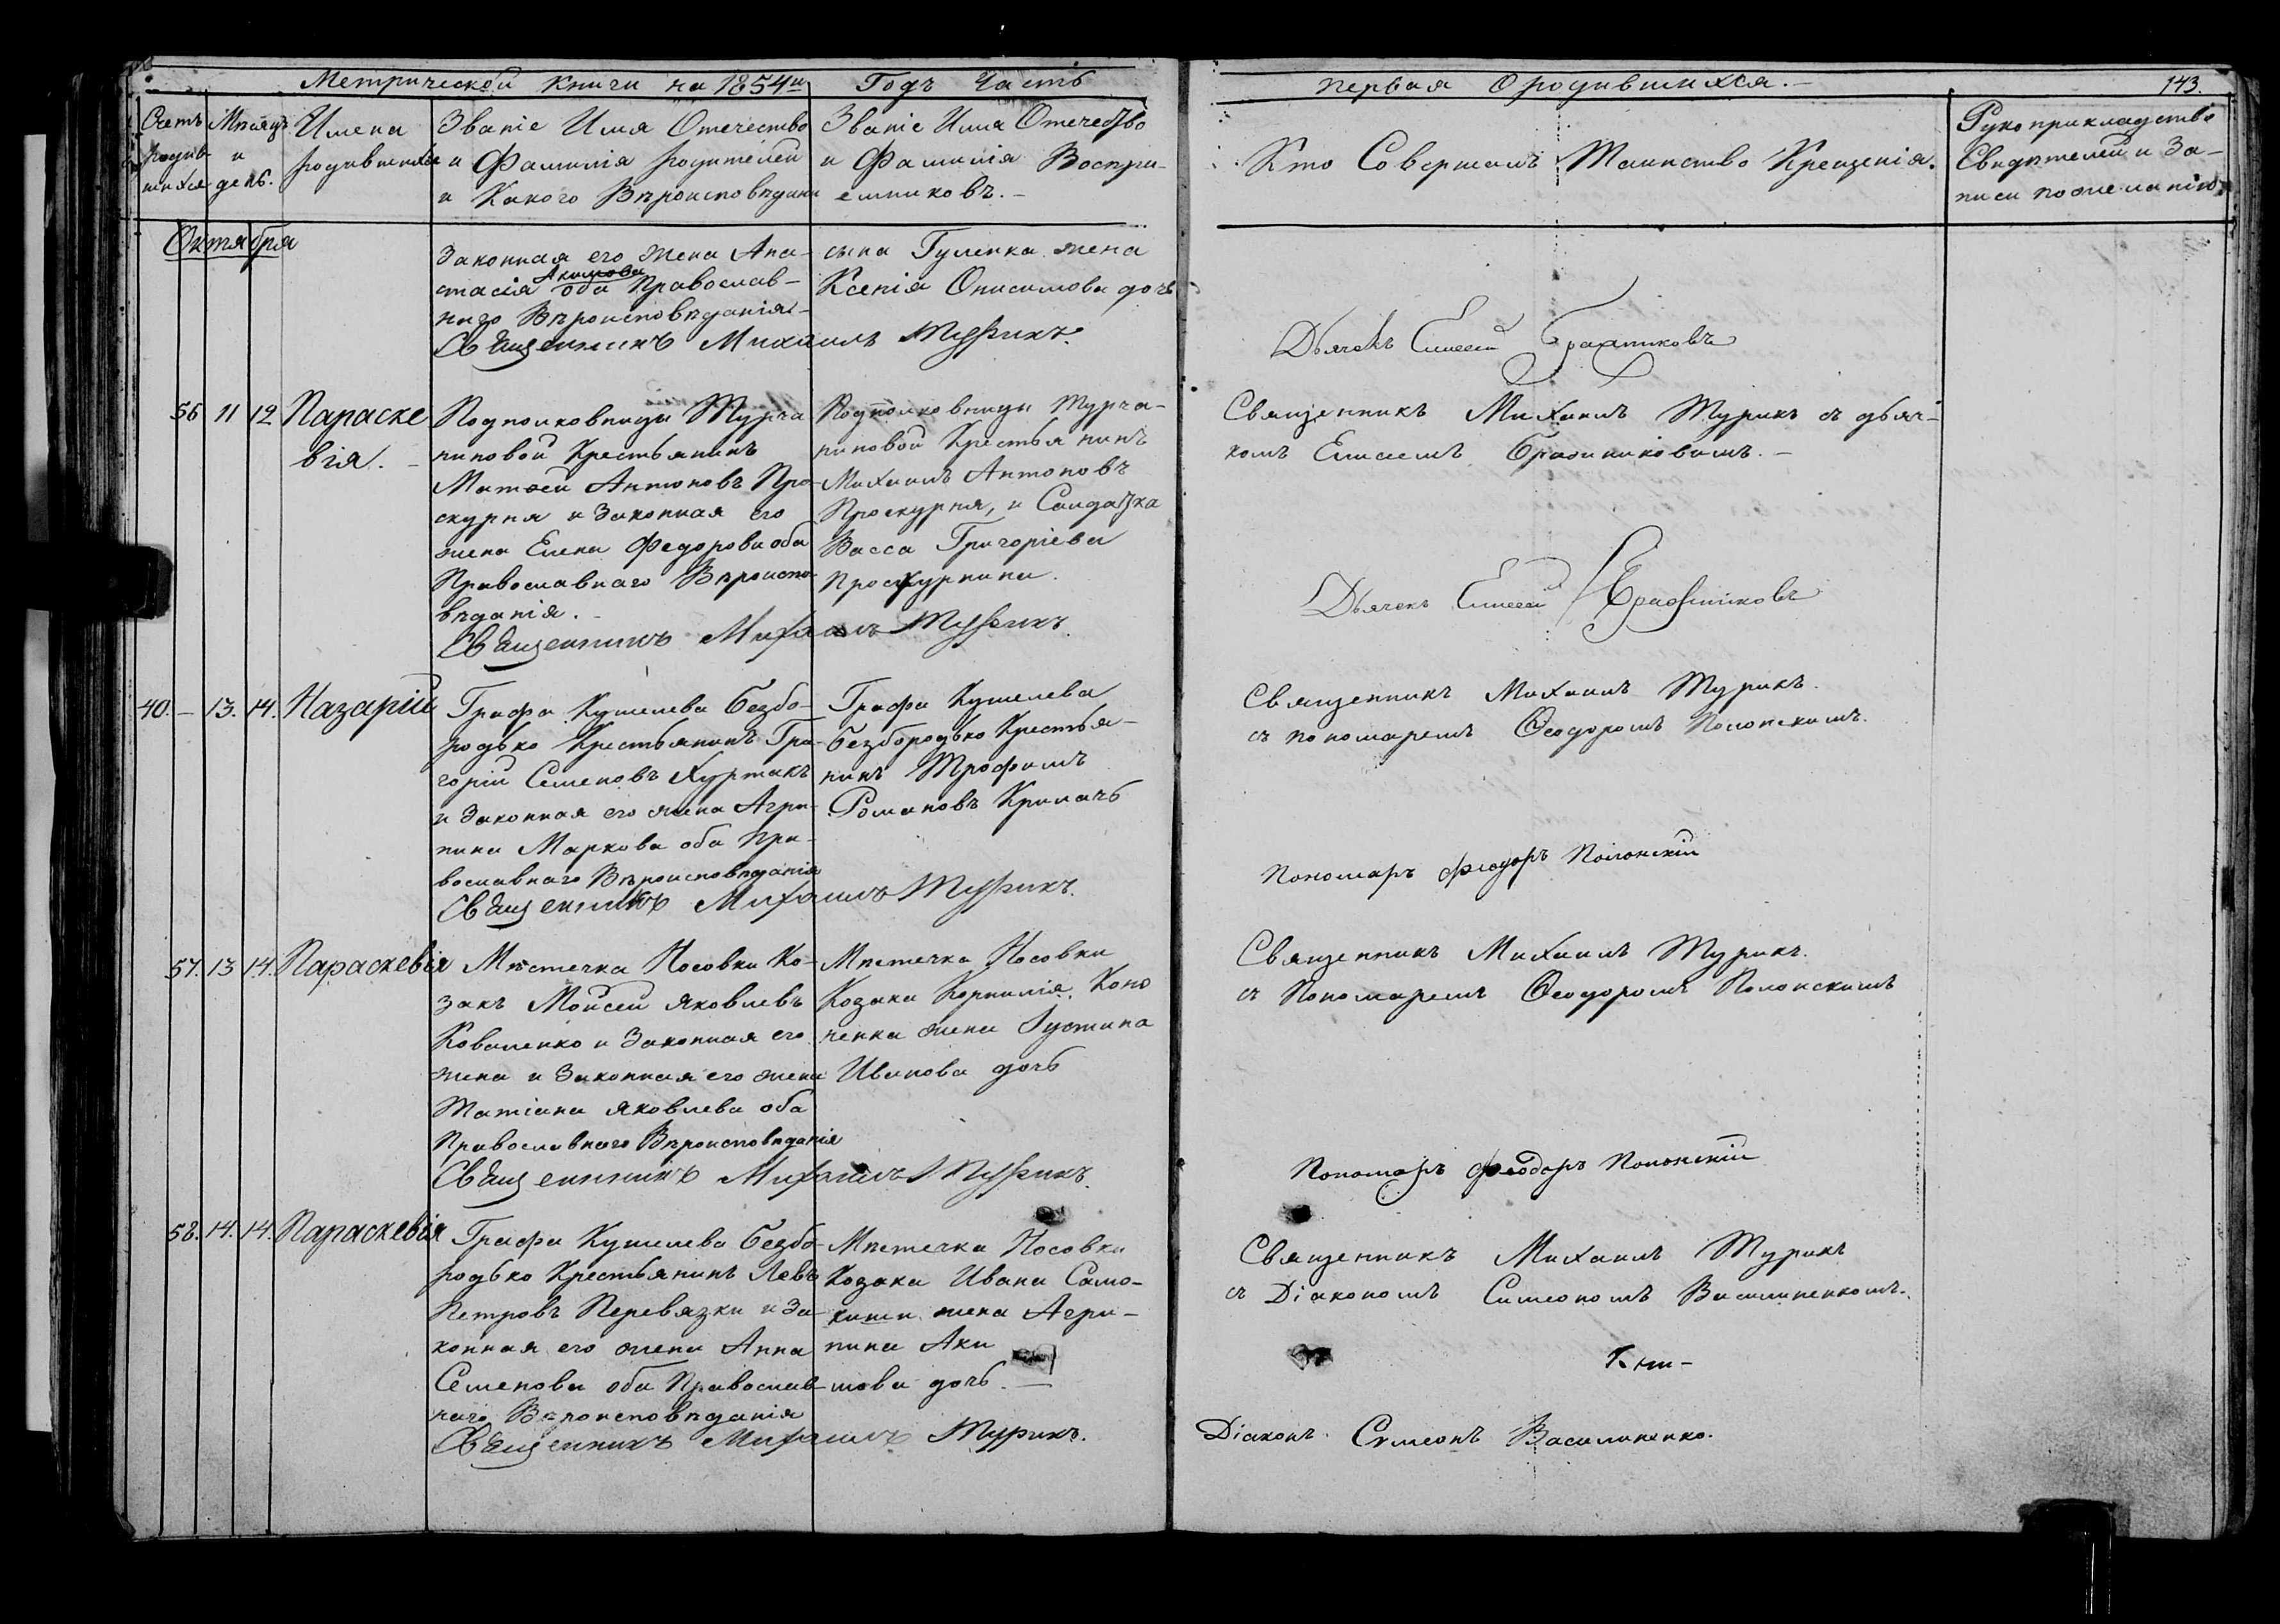 Метрической Книги на 1854й Годъ Часть
первая О родившихся.
143.
Счетъ родив-шихся
Мѣсяцъ и день.
Имена родившихся
Званіе Имя Отечество
и Фамилія родителей
и Какого Вѣроисповѣданія
Званіе Имя Отечество
и Фамилія Воспри-
емниковъ.
Кто Совершалъ Таинство Крещенія.
Рукоприкладство
Свидѣтелей и За-
писи по желанію
Октября
Законная его жена Ана-
стасія Акимова оба Православ-
наго Вѣроисповѣданія
сына Гуленка жена
Ксенія Онисимова дочь
Священникъ Михаилъ Турикъ.
Дьячокъ Елисей Братниковъ
56 11 12 Параске
вія.
Подполковницы Турча
ниновой Крестьянинъ
Матвей Антоновъ Про-
скурня и Законная его
жена Елена Федорова оба
Православнаго Вѣроиспо-
вѣданія.
Подполковницы Турча-
ниновой Крестьянинъ
Михаилъ Антоновъ
Проскурня, и Солдатка
Васса Григоріева
Проскурнина.
Священникъ Михаилъ Турикъ.
Священникъ Михаилъ Турикъ съ дьяч-
комъ Елисеемъ
Дьячекъ Елисей
40. 13. 14. Назарій
Графа Кушелева Безбо-
родько Крестьянинъ Гри-
горій Семеновъ Хуртакъ
и Законная его жена Агри-
пина Маркова оба Пра-
вославнаго Вѣроисповѣданія
Графа Кушелева
Безбородько Крестья-
нинъ Трофимъ
Романовъ Кримачь
Священникъ Михаилъ Турикъ.
Священникъ Михаилъ Турикъ.
съ пономаремъ Ѳеодоромъ Полонскимъ.
Пономарь Феодоръ Полонскій
57. 13 14. Параскевія
Мѣстечка Носовки Ко-
закъ Моисей Яковлевъ
Коваленко и Законная его
жена и Законная его жена
Татіана Яковлева оба
Православнаго Вѣроисповѣданія
Мѣстечка Носовки
Козака Корнилія Коно
ненка жена Іустина
Иванова дочь
Священникъ Михаилъ Турикъ.
Священникъ Михаилъ Турикъ.
съ Пономаремъ Ѳеодоромъ Полонскимъ
Пономарь Феодоръ Полонскій
58. 14. 14. Параскевія
Графа Кушелева Безбо-
родько Крестьянинъ Левъ
Петровъ Перевязки и За-
конная его жена Анна
Семенова оба Православ-
наго Вѣроисповѣданія
Мѣстечка Носовки
Козака Ивана Само-
киши жена Агри-
пина Аки
мова дочь.
Священникъ Михаилъ Турикъ.
Священникъ Михаилъ Турикъ
съ Діакономъ Симеономъ Василиненкомъ.
Кни-
Діаконъ Симеонъ Василиненко.